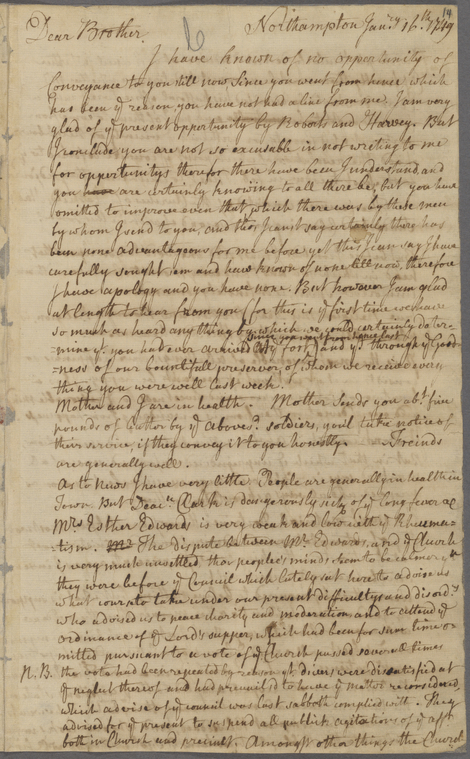 14
Northampton Jan.ry 16.th 1749
Dear Brother.
I have known of no opportunity of
Conveyance to you till now since you went from hence which
has been ye reason you have not had a line from me. I am very
glad of ye present opportunity by Robats and Harvey. But
I conclude you are not so excusable in not writing to me
for opportunitys therefor there have been I understand and
you have are certainly knowing to all there be, but you have
omitted to improve even that which there was by these men
by whom I send to you, and tho I cant say certainly there has
been none advantageous for me before yet this I can say I have
carefully sought em and have known of none till now, therefore
I have apology and you have none. But however I am glad
at length to hear from you (for this is ye first time we have
so much as heard any thing by which we could certainly deter=
since you went from hence last
mine yt. you had ever arrived at ye fort) and yt through ye Good=
=ness of our bountifull preserver, of whom we receive every
thing you were well last week.
Mother and I are in health. Mother sends you abt. five
pounds of butter by ye aboves.d soldiers, youll take notice of
their service, if they convey it to you honestly. Freinds
are generally well.
As to News I have very little. People are generally in health in
Town But Deac.n Clark is dangerously sick of ye long fever
Mrs Esther Edwards is very weak and low with ye Rheuma=
tism. Mr The dispute between Mr. Edwards and ye Church
is very much unsettled tho peoples minds seem to be calmer yn
they were before ye Council which lately sat here tho advise us
what course to take under our present difficultys and disord.rs
who advised us to peace charity and moderation and to attend ye
ordinance of ye Lord's supper, which had been for sum time o=
mitted pursuant to a vote of ye Church passed several times
N.B. the vote had been repeated by reason yt divers were dissatisfied at
ye neglect thereof and had prevail'd to have ye matter reconsidered,
which advise of ye council was last sabbath complied with. They
advised for ye present to suspend all publick agitations of ye aff.r
both in Church and precinct. Amongst other things the Church